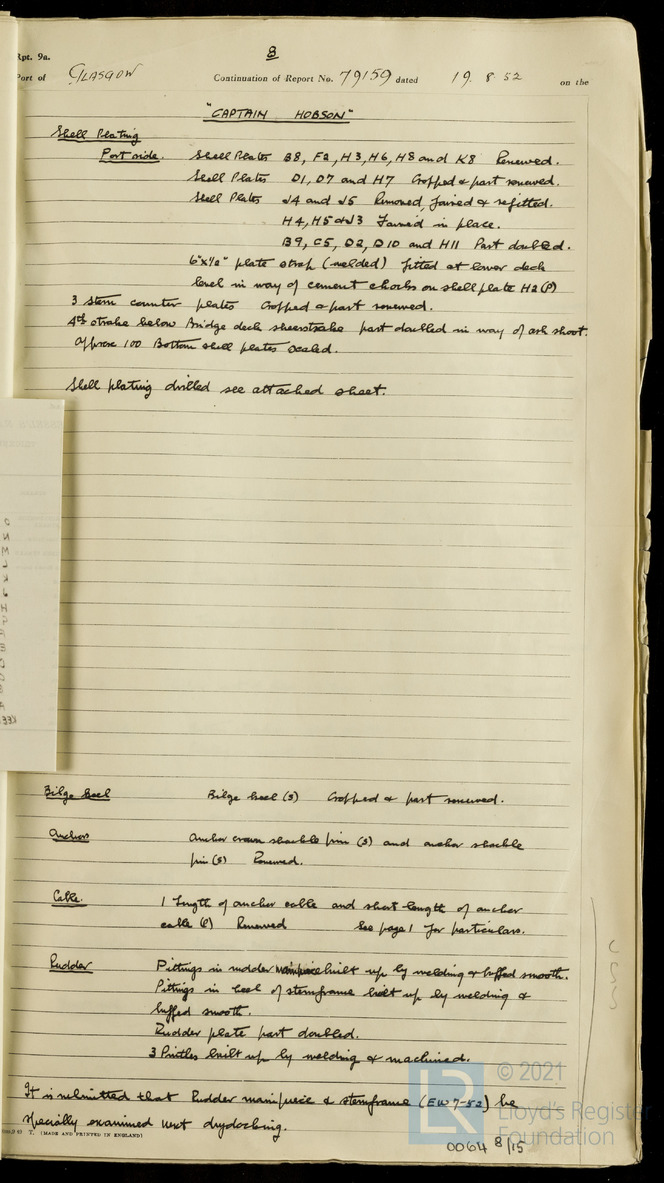 Rpt. 9a.
8
Port of GLASGOW Continuation of Report No. 79159 dated 19. 8. 52 on the
"CAPTAIN HOBSON"
Shell Plating
Port side. Shell Plates B8, F2, H3, H6, H8 and K8 Renewed.
Shell Plates D1, D7 and H7 Cropped & part renewed.
Shell Plates J4 and J5 Removed, faired & refitted.
H4, H5 & J3 Faired in place.
B9, C5, D2, D10 and H11 Part doubled.
6"x½" plate strap (welded) fitted at lower deck
level in way of cement chocks on shell plate H2 (P)
3 stern counter plates Cropped & part renewed.
4th strake below Bridge deck sheerstrake part doubled in way of ash shoot.
Approx 100 Bottom shell plates scaled.
Shell plating drilled see attached sheet.
Bilge keel Bilge keel (S) Cropped & part renewed.
Anchors Anchor crown shackle pin (S) and anchor shackle
pin (S) Renewed.
Cable. 1 length of anchor cable and short length of anchor
cable (P) Renewed See page 1 for particulars.
Rudder Pittings in rudder mainpiece built up by welding & buffed smooth.
Pittings in heel of sternframe built up by welding &
buffed smooth.
Rudder plate part doubled.
3 Pintles built up by welding & machined.
It is submitted that Rudder mainpiece & sternframe (EW 7-52) be
specially examined next drydocking.
T. (MADE AND PRINTED IN ENGLAND)
© 2021
Lloyd's Register
Foundation
0064 8/15